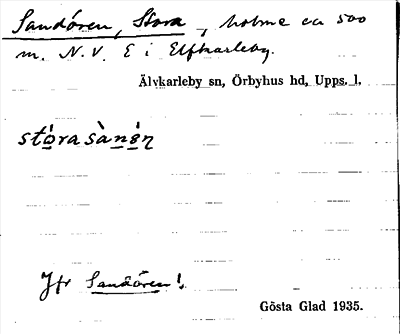 Sandören, Stora, holme ca 500
m. N.V. E i Elfkarleby.
Älvkarleby sn, Örbyhus hd, Upps. l.
stóra sànǝ̀n
Jfr Sandören!
Gösta Glad 1935.